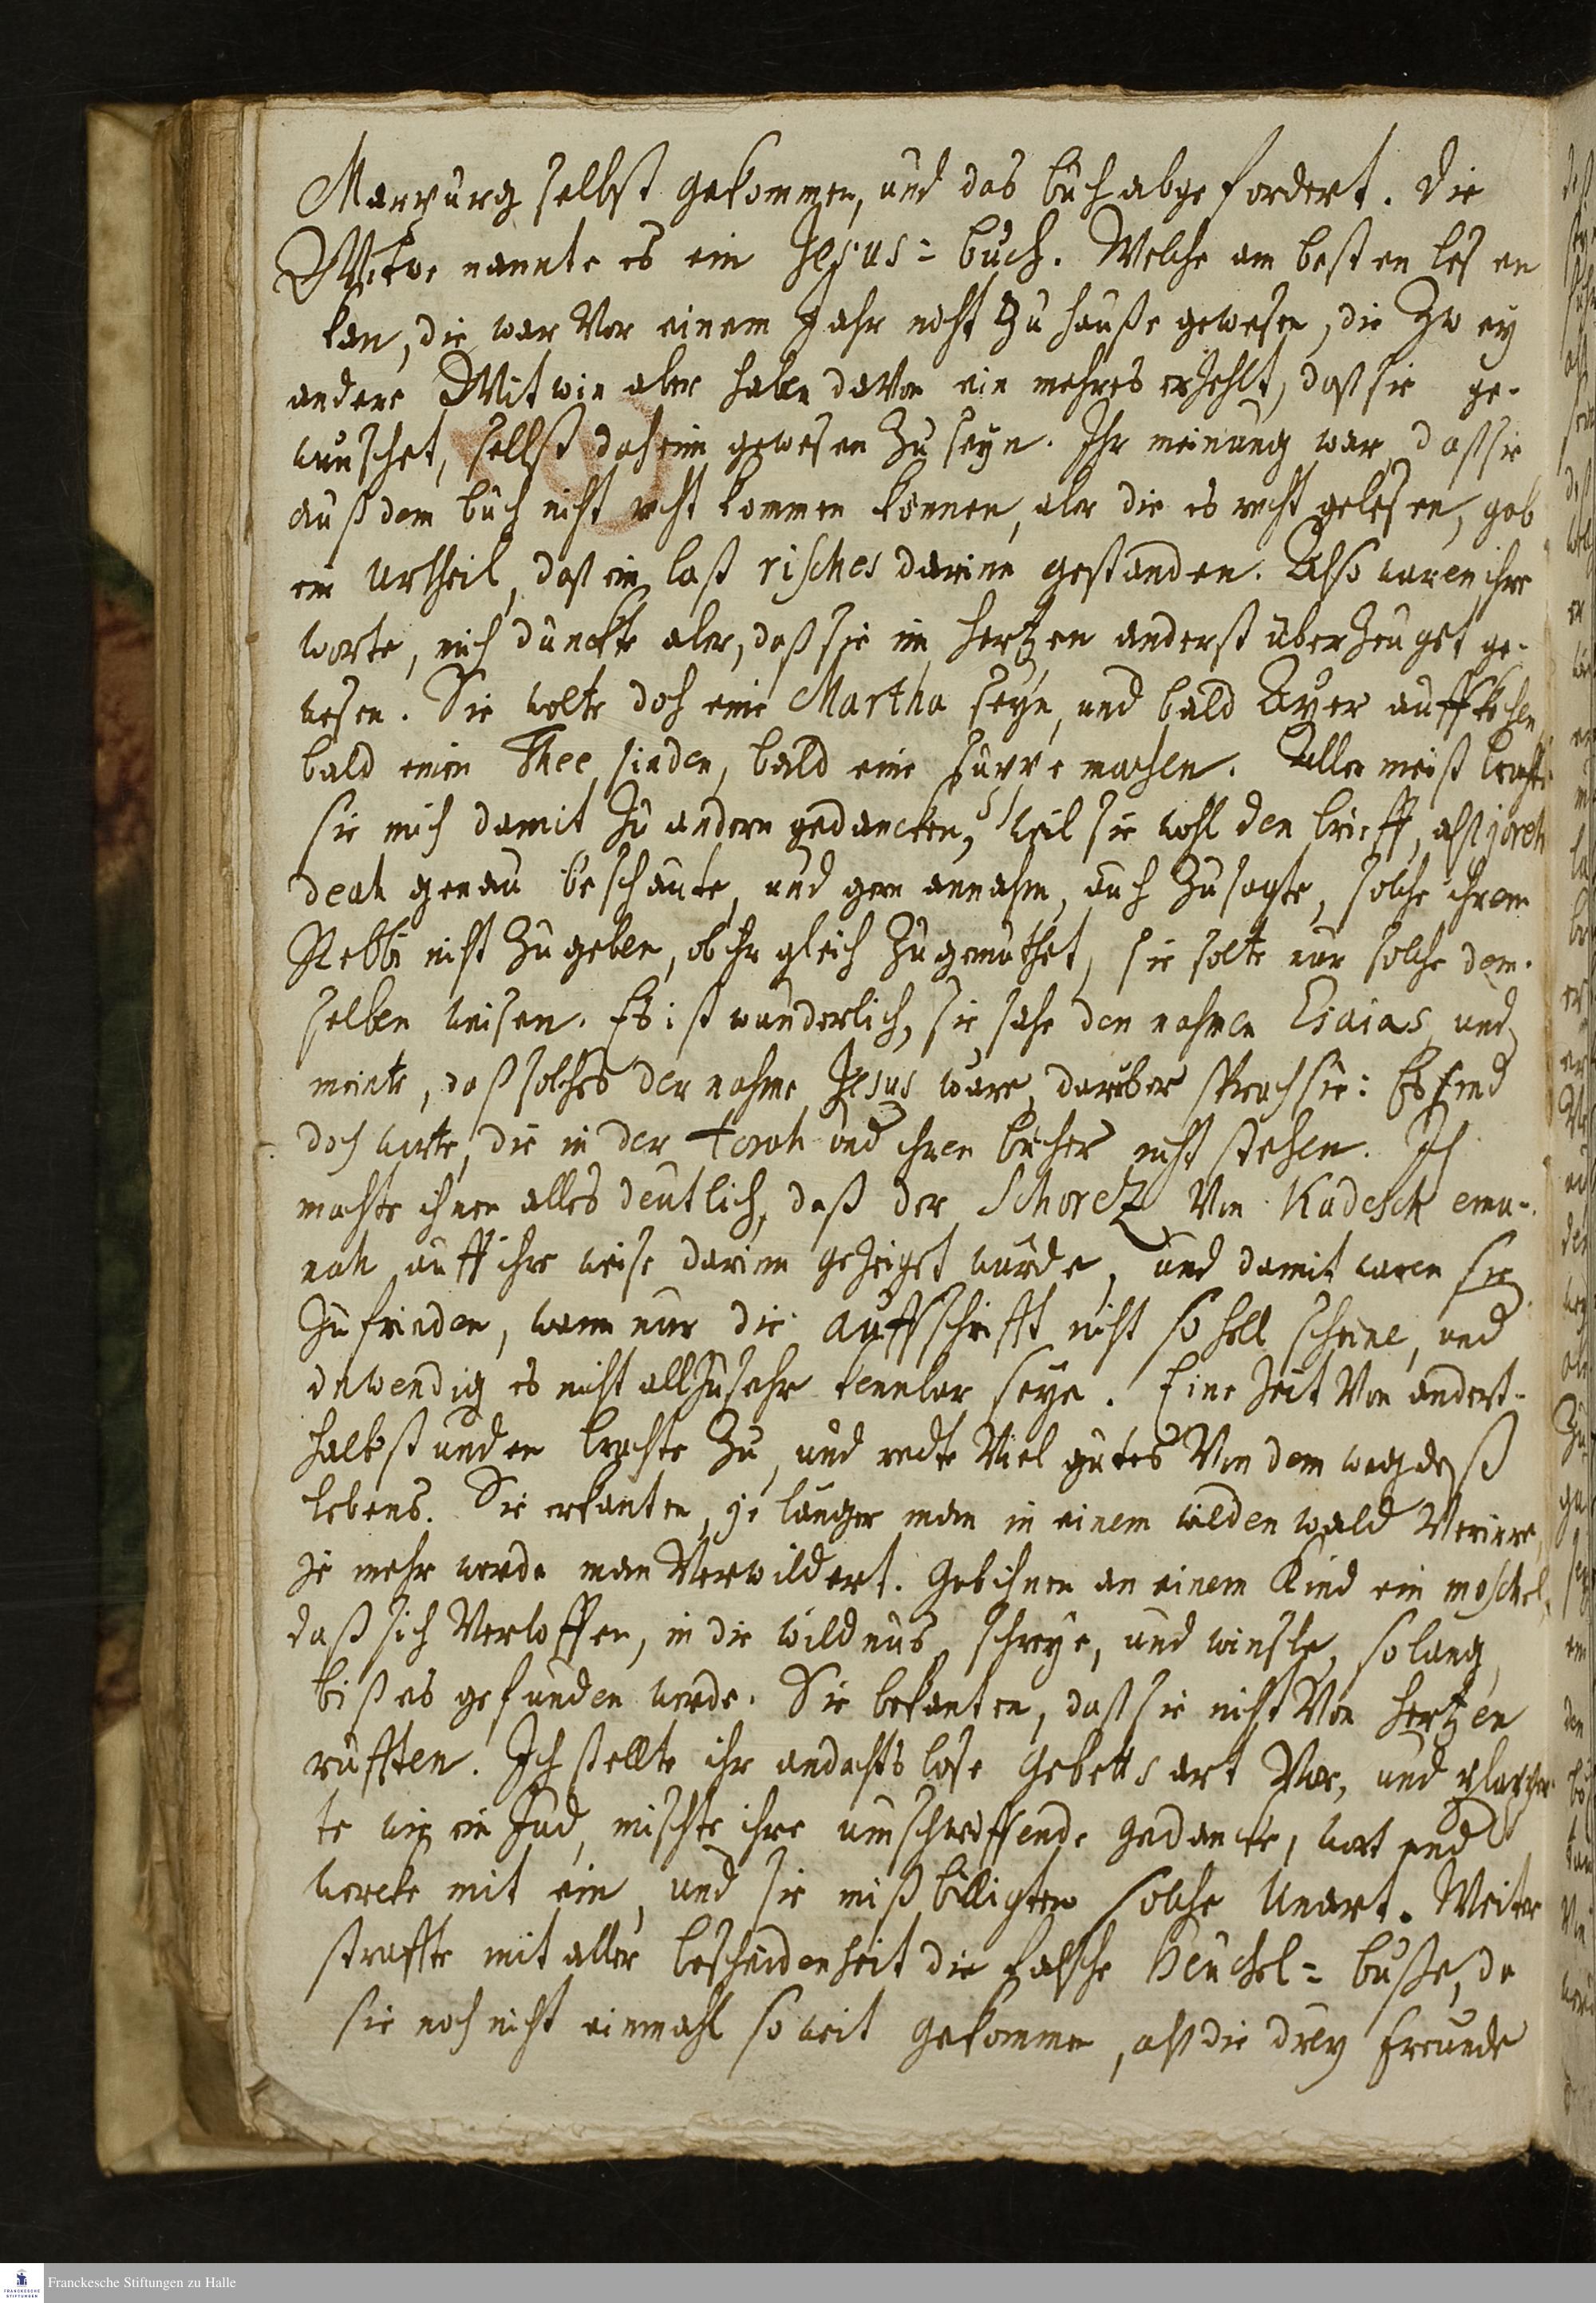 Marpurg selbst gekommen, und das buch abgefordert. Die
Witwe nannte es ein Jesus=buch. Welche am besten lesen
kan, die war vor einem Jahr nicht zu hauße gewesen, die zwey
andere Witwin aber haben davon ein mehres erzehlt, daß sie ge-
wunschet, selbst daheim gewesen zu seyn. Ihr meinung war, daß sie
auß dem buch nicht recht kommen können, aber die es recht gelesen, gab
ein Urtheil, daß ein lastrisches darinn gestanden. Also waren ihre
worte, mich dunckte aber, daß sie im hertzen anderst überzeuget ge-
wesen. Sie wolte doch eine Martha seyn, und bald Ayer auffkochen
bald einen Thee sieden, bald eine suppe machen. Aller meist brachte
sie mich damit zu andern gedancken, weil sie wohl den brieff, alß joreh
deah genau beschaute, und gern annahm, auch zusagte, solche ihrem
Rebbi nicht zu geben, ob ihr gleich zugemuthet, sie solte nur solche dem-
selben weisen. Es ist wunderlich, sie sahe den nahmen Esaias und
meinte, daß solches der nahme Jesus ware, darüber sprach sie: Es sind
doch worte, die in der torah und ihren bücher nicht stehen. Ich
machte ihnen alles deutlich, daß der Schoresz von Kadesch emu-
nah auff ihre weise darinn gezeiget würde, und damit waren sie
zufrieden, wann nur die auffschrifft nicht so hell scheine, und
inwendig es nicht allzusehr kennbar seye. Eine Zeit von andert-
halb stunden brachte zu, und redte viel gutes von dem weg deß
lebens. Sie erkanten, je länger man in einem wilden wald verirre,
je mehr werde man verwildert. Gab ihnen an einem Kind ein moschel,
daß sich verloffen, in die wildnus, schreye, und winsle, so lang
biß es gefunden werde. Sie bekanten, daß sie nicht von hertzen
rufften. Ich stellte ihr andachtslose Gebetts art vor, und plapper-
te wie ein Jud, mischte ihre umschweiffende gedancke, wort und
wercke mit ein, und sie mißbilligten solche Unart. Weiter
straffte mit aller bescheidenheit die falsche Heuchel=busse, da
sie noch nicht einmahl so weit gekommen, alß die drey freunde
Franckesche Stiftungen zu Halle